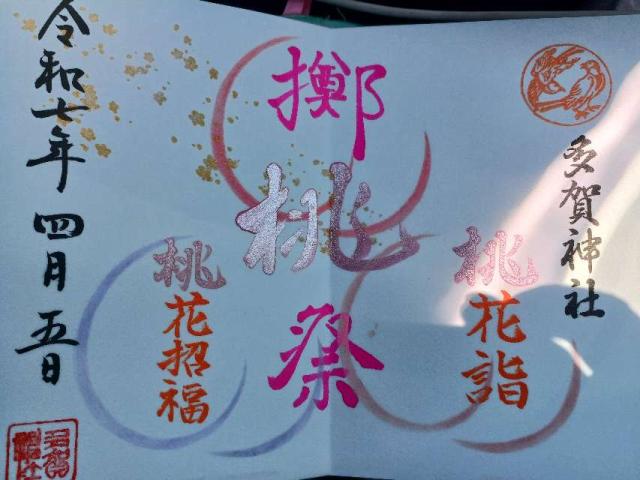 多賀神社
桃花詣
擲桃祭
桃花招福
令和七年四月五日